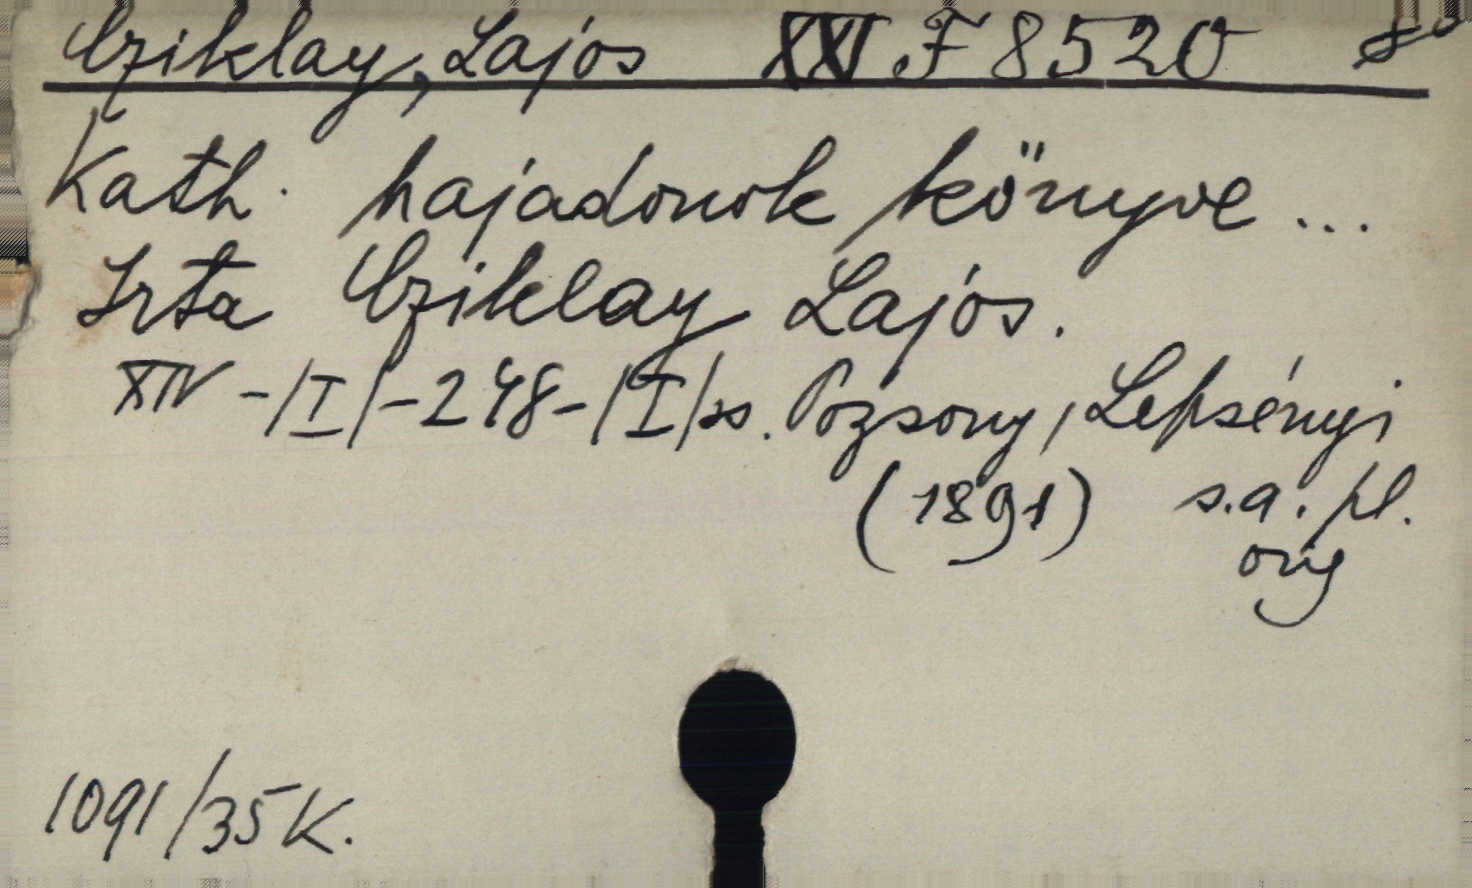 Cziklay, Lajos XXI. F 8520 8°
Kath. hajadonok könyve ...
Irta Cziklay Lajos.
XIV -/I/-248-/I/ss. Pozsony, Lepsényi
(1891) s.a. pl.
orig
1091/35 K.